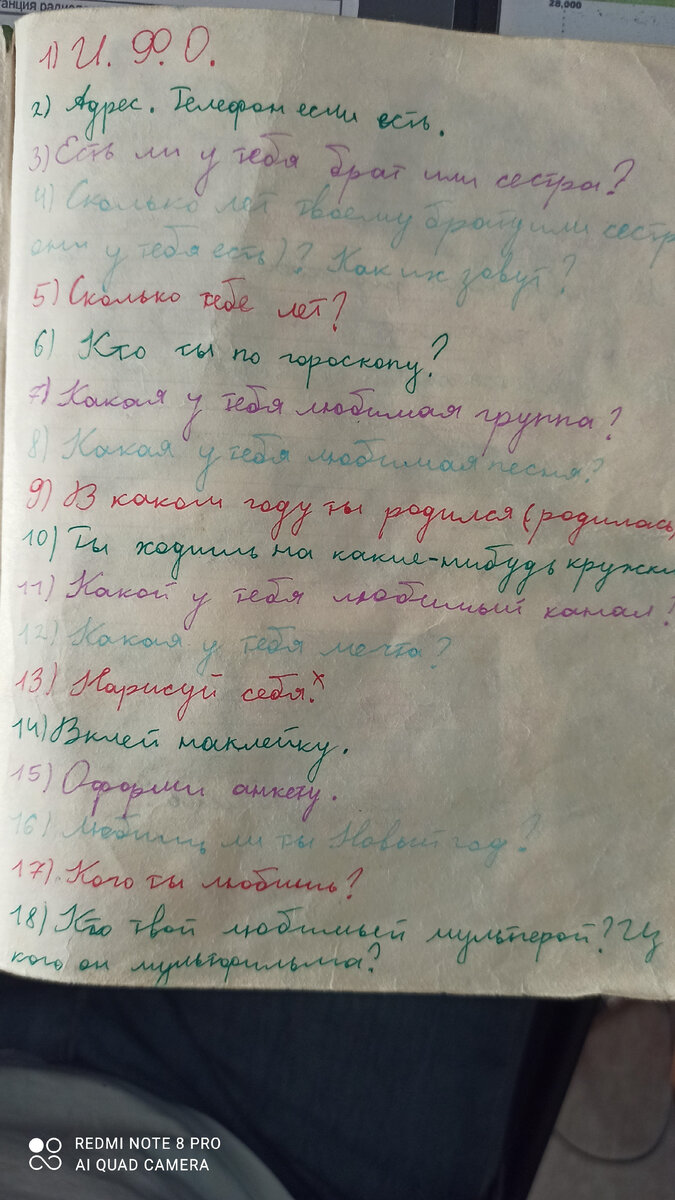 28,000
1) И. Ф. О.
2) Адрес. Телефон если есть.
3) Есть ли у тебя брат или сестра?
4) Сколько лет твоему брату или сестр
они у тебя есть)? Как их зовут?
5) Сколько тебе лет?
6) Кто ты по гороскопу?
7) Какая у тебя любимая группа?
8) Какая у тебя любимая песня?
9) В каком году ты родился (родилась)
10) Ты ходишь на какие-нибудь кружки
11) Какой у тебя любимый канал?
12) Какая у тебя мечта?
13) Нарисуй себя.х
14) Вклей наклейку.
15) Оформи анкету.
16) Любишь ли ты Новый год?
17) Кого ты любишь?
18) Кто твой любимый мультгерой? Из
кого он мультфильма?
REDMI NOTE 8 PRO
AI QUAD CAMERA